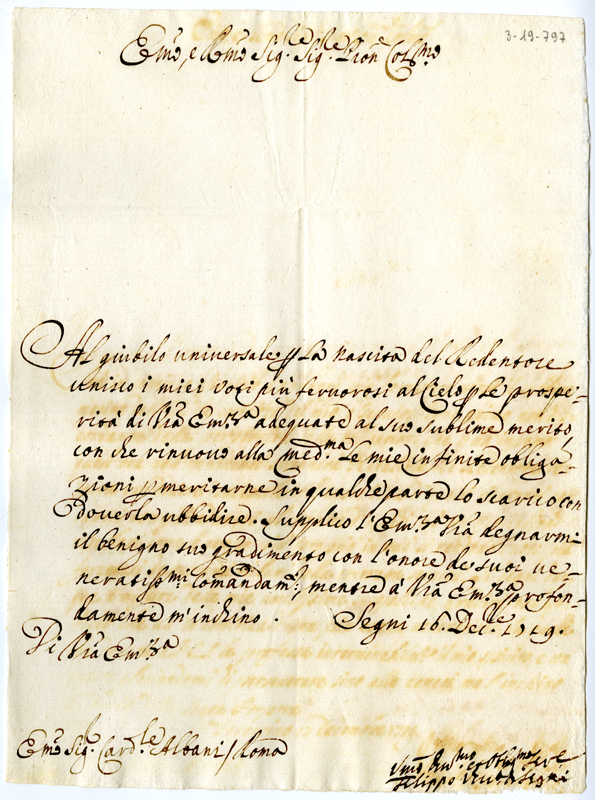 3-19-797
Em̃o, e Rm̃o Sig.re Sig.re Pron̄ Col.mo
Al giubilo universale p la nascita del Redentore
unisco i miei voti più fervorosi al Cielo p le prospe-
rità di Vr̃a Em.za adequate al suo sublime merito,
con che rinuovo alla med.ma le mie infinite obliga-
zioni p meritarne in qualche parte lo scarico con
doverla ubbidire. Supplico l'Em.za Vr̃a degnarmi
il benigno suo gradimento con l'onore de suoi ve-
neratiss.mi comandam.ti, mentre à Vr̃a Em.za profon-
damente m'inchino. Segni 16. Dec.re 1719.
Di Vr̃a Em.za
Em̃o Sig.r Card.le Albani / Roma
Um̃o Dev.mo et Obl.mo Ser.e
Filippo Vesc. di Segni